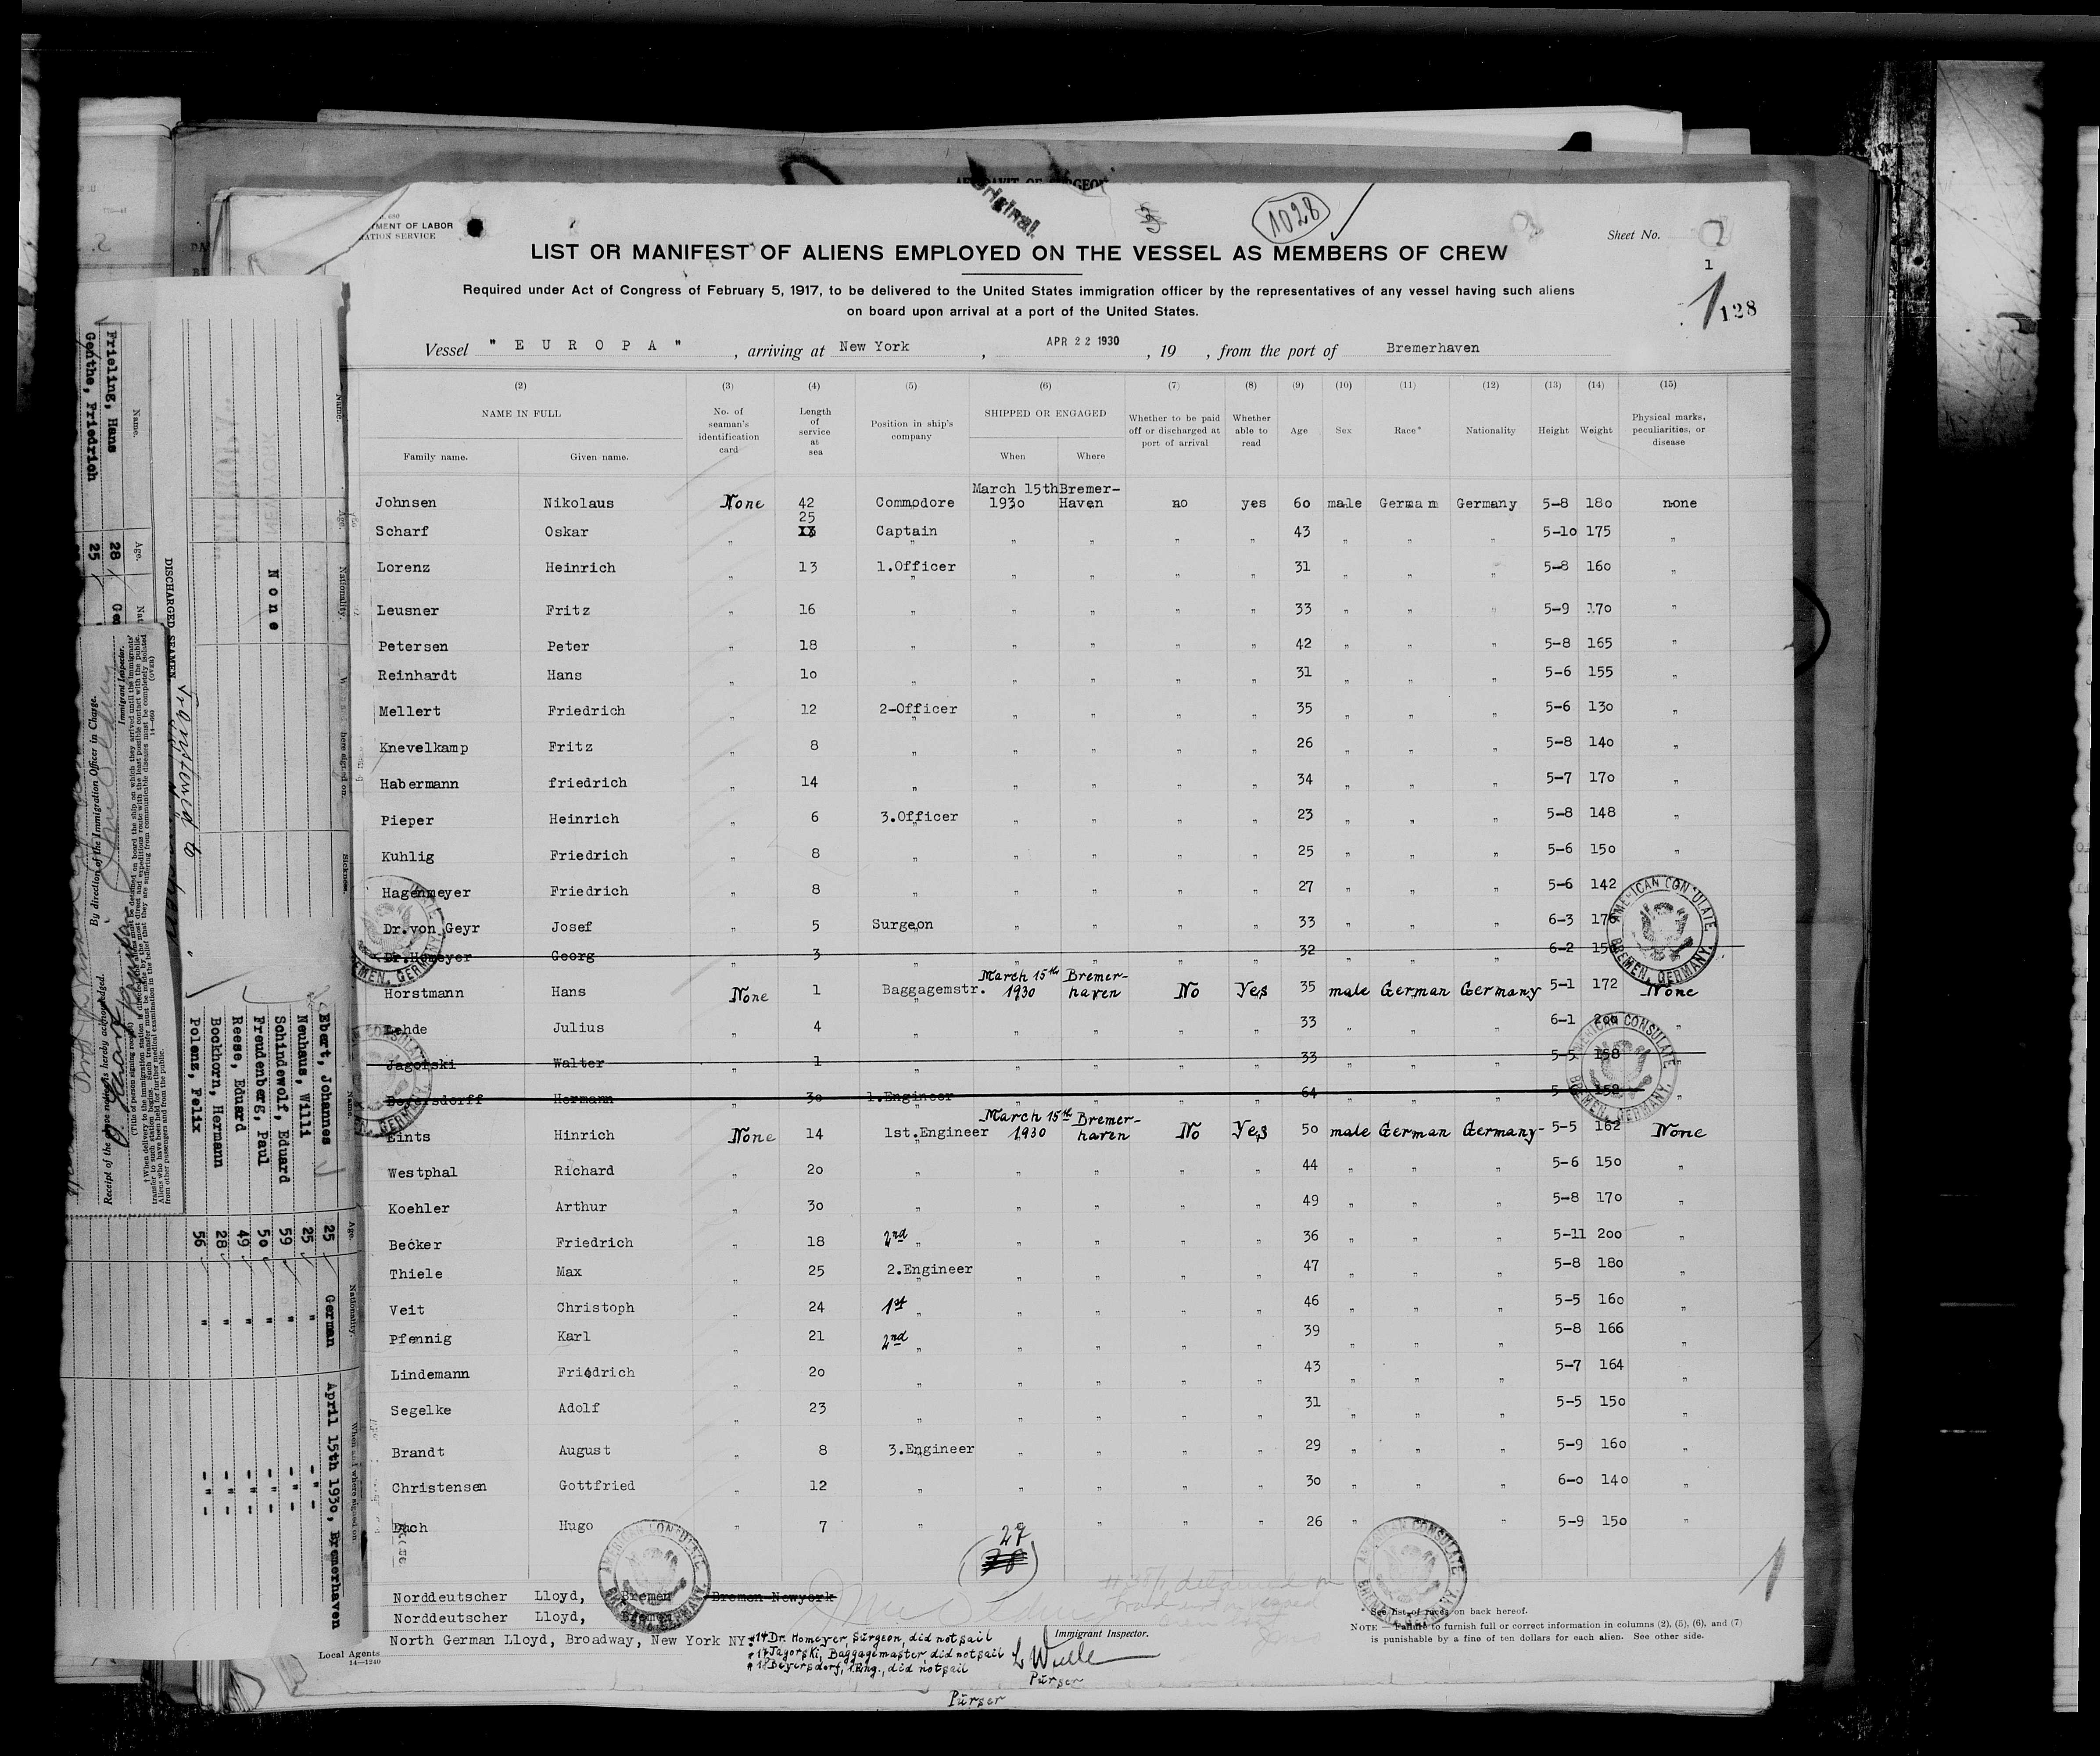 Original
1028
TMENT OF LABOR
ATION SERVICE
Sheet No.
1
LIST OR MANIFEST OF ALIENS EMPLOYED ON THE VESSEL AS MEMBERS OF CREW
Required under Act of Congress of February 5, 1917, to be delivered to the United States immigration officer by the representatives of any vessel having such aliens
on board upon arrival at a port of the United States.
1 128
Vessel " E U R O P A " , arriving at New York , APR 22 1930 , 19 , from the port of Bremerhaven
(2) (3) (4) (5) (6) (7) (8) (9) (10) (11) (12) (13) (14) (15)
NAME IN FULL
Family name. Given name.
No. of seaman's identification card
Length of service at sea
Position in ship's company
SHIPPED OR ENGAGED
When Where
Whether to be paid off or discharged at port of arrival
Whether able to read
Age Sex Race* Nationality Height Weight
Physical marks, peculiarities, or disease
Johnsen Nikolaus None 42 Commodore March 15th 1930 Bremer-Haven no yes 60 male German Germany 5-8 180 none
Scharf Oskar " 25 Captain " " " " 43 " " " 5-10 175 "
Lorenz Heinrich " 13 1.Officer " " " " 31 " " " 5-8 160 "
Leusner Fritz " 16 " " " " " 33 " " " 5-9 170 "
Petersen Peter " 18 " " " " " 42 " " " 5-8 165 "
Reinhardt Hans " 10 " " " " " 31 " " " 5-6 155 "
Mellert Friedrich " 12 2-Officer " " " " 35 " " " 5-6 130 "
Knevelkamp Fritz " 8 " " " " " 26 " " " 5-8 140 "
Habermann friedrich " 14 " " " " " 34 " " " 5-7 170 "
Pieper Heinrich " 6 3.Officer " " " " 23 " " " 5-8 148 "
Kuhlig Friedrich " 8 " " " " " 25 " " " 5-6 150 "
Hagenmeyer Friedrich " 8 " " " " " 27 " " " 5-6 142
Dr.von Geyr Josef " 5 Surgeon " " " " 33 " " " 6-3
Dr.Homeyer Georg " 3 " " " " " 32 " " " 6-2
Horstmann Hans None 1 Baggagemstr. March 15th 1930 Bremer-haven No Yes 35 male German Germany 5-1 172 None
Julius " 4 " " " " " 33 " " " 6-1 200 "
Jagorski Walter " 1 " " " " " 33 " " " 5-5 158 "
Beyersdorff Hermann " 30 1.Engineer " " " " 64 " " " 158 "
Eints Hinrich None 14 1st.Engineer March 15th 1930 Bremer-haven No Yes 50 male German Germany- 5-5 162 None
Westphal Richard " 20 " " " " " 44 " " " 5-6 150 "
Koehler Arthur " 30 " " " " " 49 " " " 5-8 170 "
Becker Friedrich " 18 2nd " " " " " 36 " " " 5-11 200 "
Thiele Max " 25 2.Engineer " " " " 47 " " " 5-8 180 "
Veit Christoph " 24 1st " " " " " 46 " " " 5-5 160 "
Pfennig Karl " 21 2nd " " " " " 39 " " " 5-8 166 "
Lindemann Friedrich " 20 " " " " " 43 " " " 5-7 164 "
Segelke Adolf " 23 " " " " " 31 " " " 5-5 150 "
Brandt August " 8 3.Engineer " " " " 29 " " " 5-9 160 "
Christensen Gottfried " 12 " " " " " 30 " " " 6-0 140 "
Hugo " 7 " " " " " 26 " " " 5-9 150 "
27
AMERICAN CONSULATE
BREMEN, GERMANY.
Norddeutscher Lloyd, Bremen Bremen-Newyork
Norddeutscher Lloyd, Bremen
North German Lloyd, Broadway, New York NY.
Local Agents
14—1240
#14 Dr. Homeyer, Surgeon, did not sail
#17 Jagorski, Baggagemaster, did not sail
#18 Beyersdorf, 1.Eng., did not sail
Immigrant Inspector.
Purser
Purser
* See list of races on back hereof.
NOTE.—Failure to furnish full or correct information in columns (2), (5), (6), and (7)
is punishable by a fine of ten dollars for each alien. See other side.
1
Name. Age. Nationality.
Frieling, Hans 28
Genthe, Friedrich 25
DISCHARGED SEAMEN
None
Sickness.
By direction of the Immigration Officer in Charge.
Immigrant Inspector.
Receipt of the above notice is hereby acknowledged.
(OVER)
Name. Age. Nationality. When and where signed on.
Ebert, Johannes 25 German April 15th 1930, Bremerhaven
Neuhaus, Willi 25 " - " -
Schindewolf, Eduard 59 " - " -
Freudenberg, Paul 50 " - " -
Reese, Eduard 49 " - " -
Bockhorn, Hermann 28 " - " -
Polenz, Felix 56 " - " -